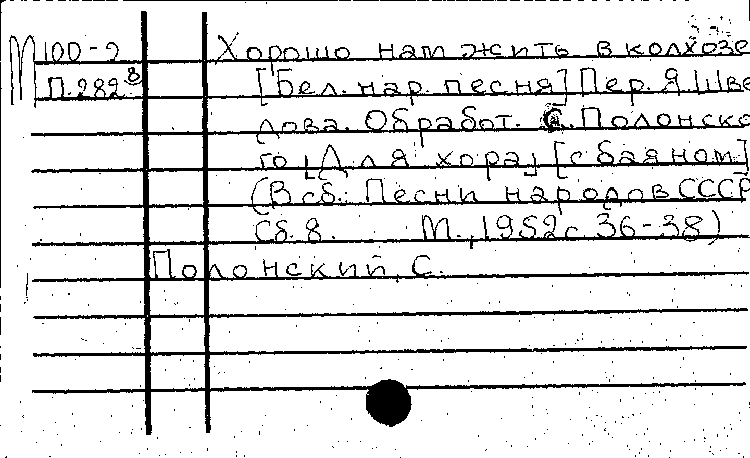 М 100-2 Хорошо нам жить в колхозе
П.282⁸ [Бел. нар. песня] Пер. Я Шве
дова. Обработ. С. Полонско
го [Для хора] [с баяном]
(В сб.: Песни народов СССР
Сб. 8. М., 1952 с 36-38)
Полонский, С.